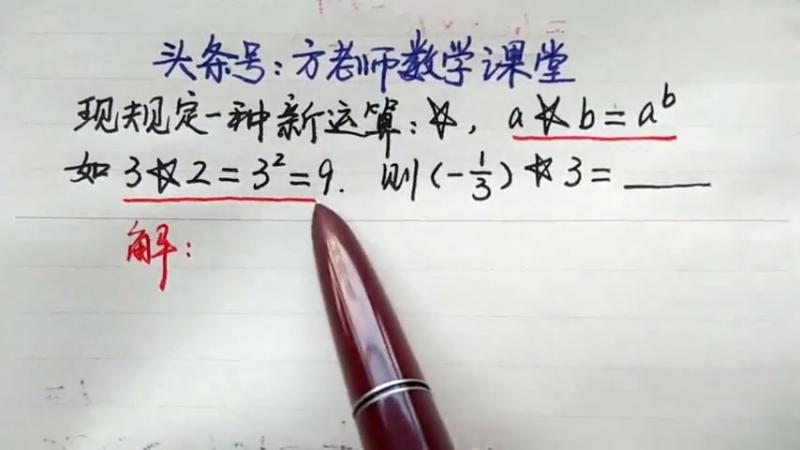 头条号：方老师数学课堂
现规定一种新运算：☆，a☆b=aᵇ
如 3☆2=3²=9. 则(-1/3)☆3=____
解：